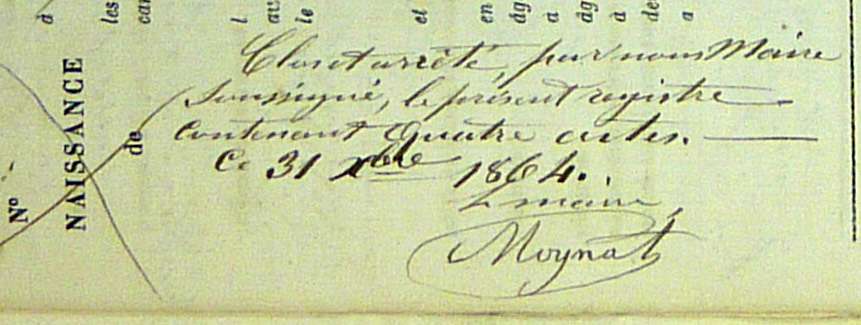 à
les
car
l
aus
le
et
en
âg
à
âg
à
de
a
N°
NAISSANCE
de
Clos et arrêté, par nous Maire
soussigné, le présent registre
contenant quatre actes.
Ce 31 Xbre 1864.
L maire,
Moynat